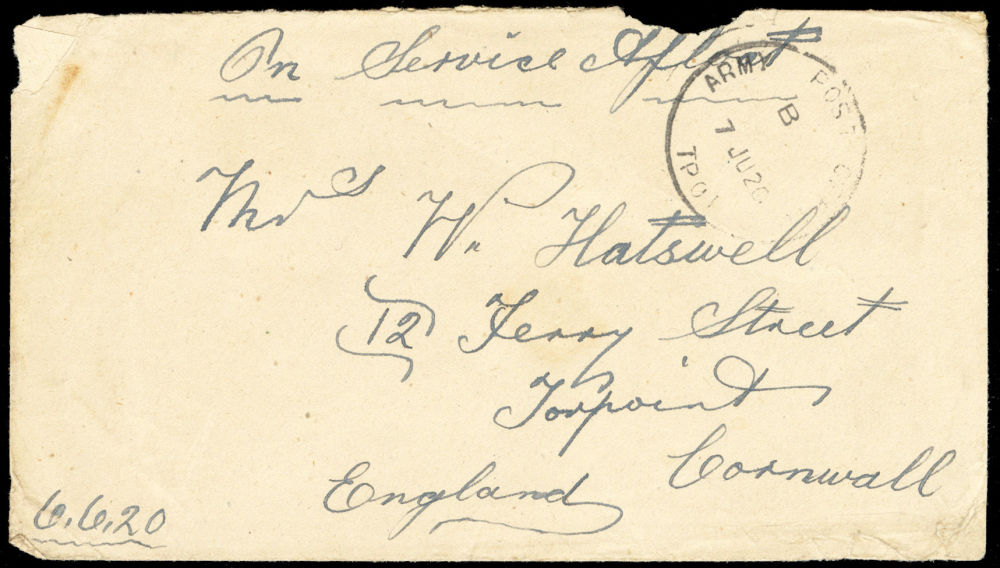 On Service Afloat
ARMY POST
B
7 JU 20
TPO1
Mrs W. Hatswell
12 Ferry Street
Torpoint
Cornwall
England
6.6.20